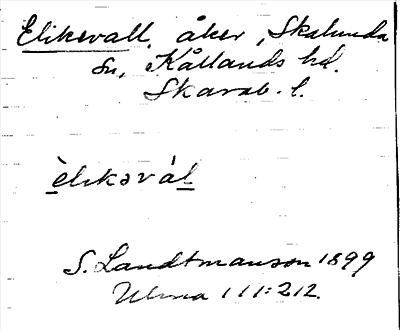 Elikevall, åker, Skalunda
sn, Kållands hd.
Skarab. l.
èlıkəvál
S. Landtmanson 1899
Ulma 111:212.